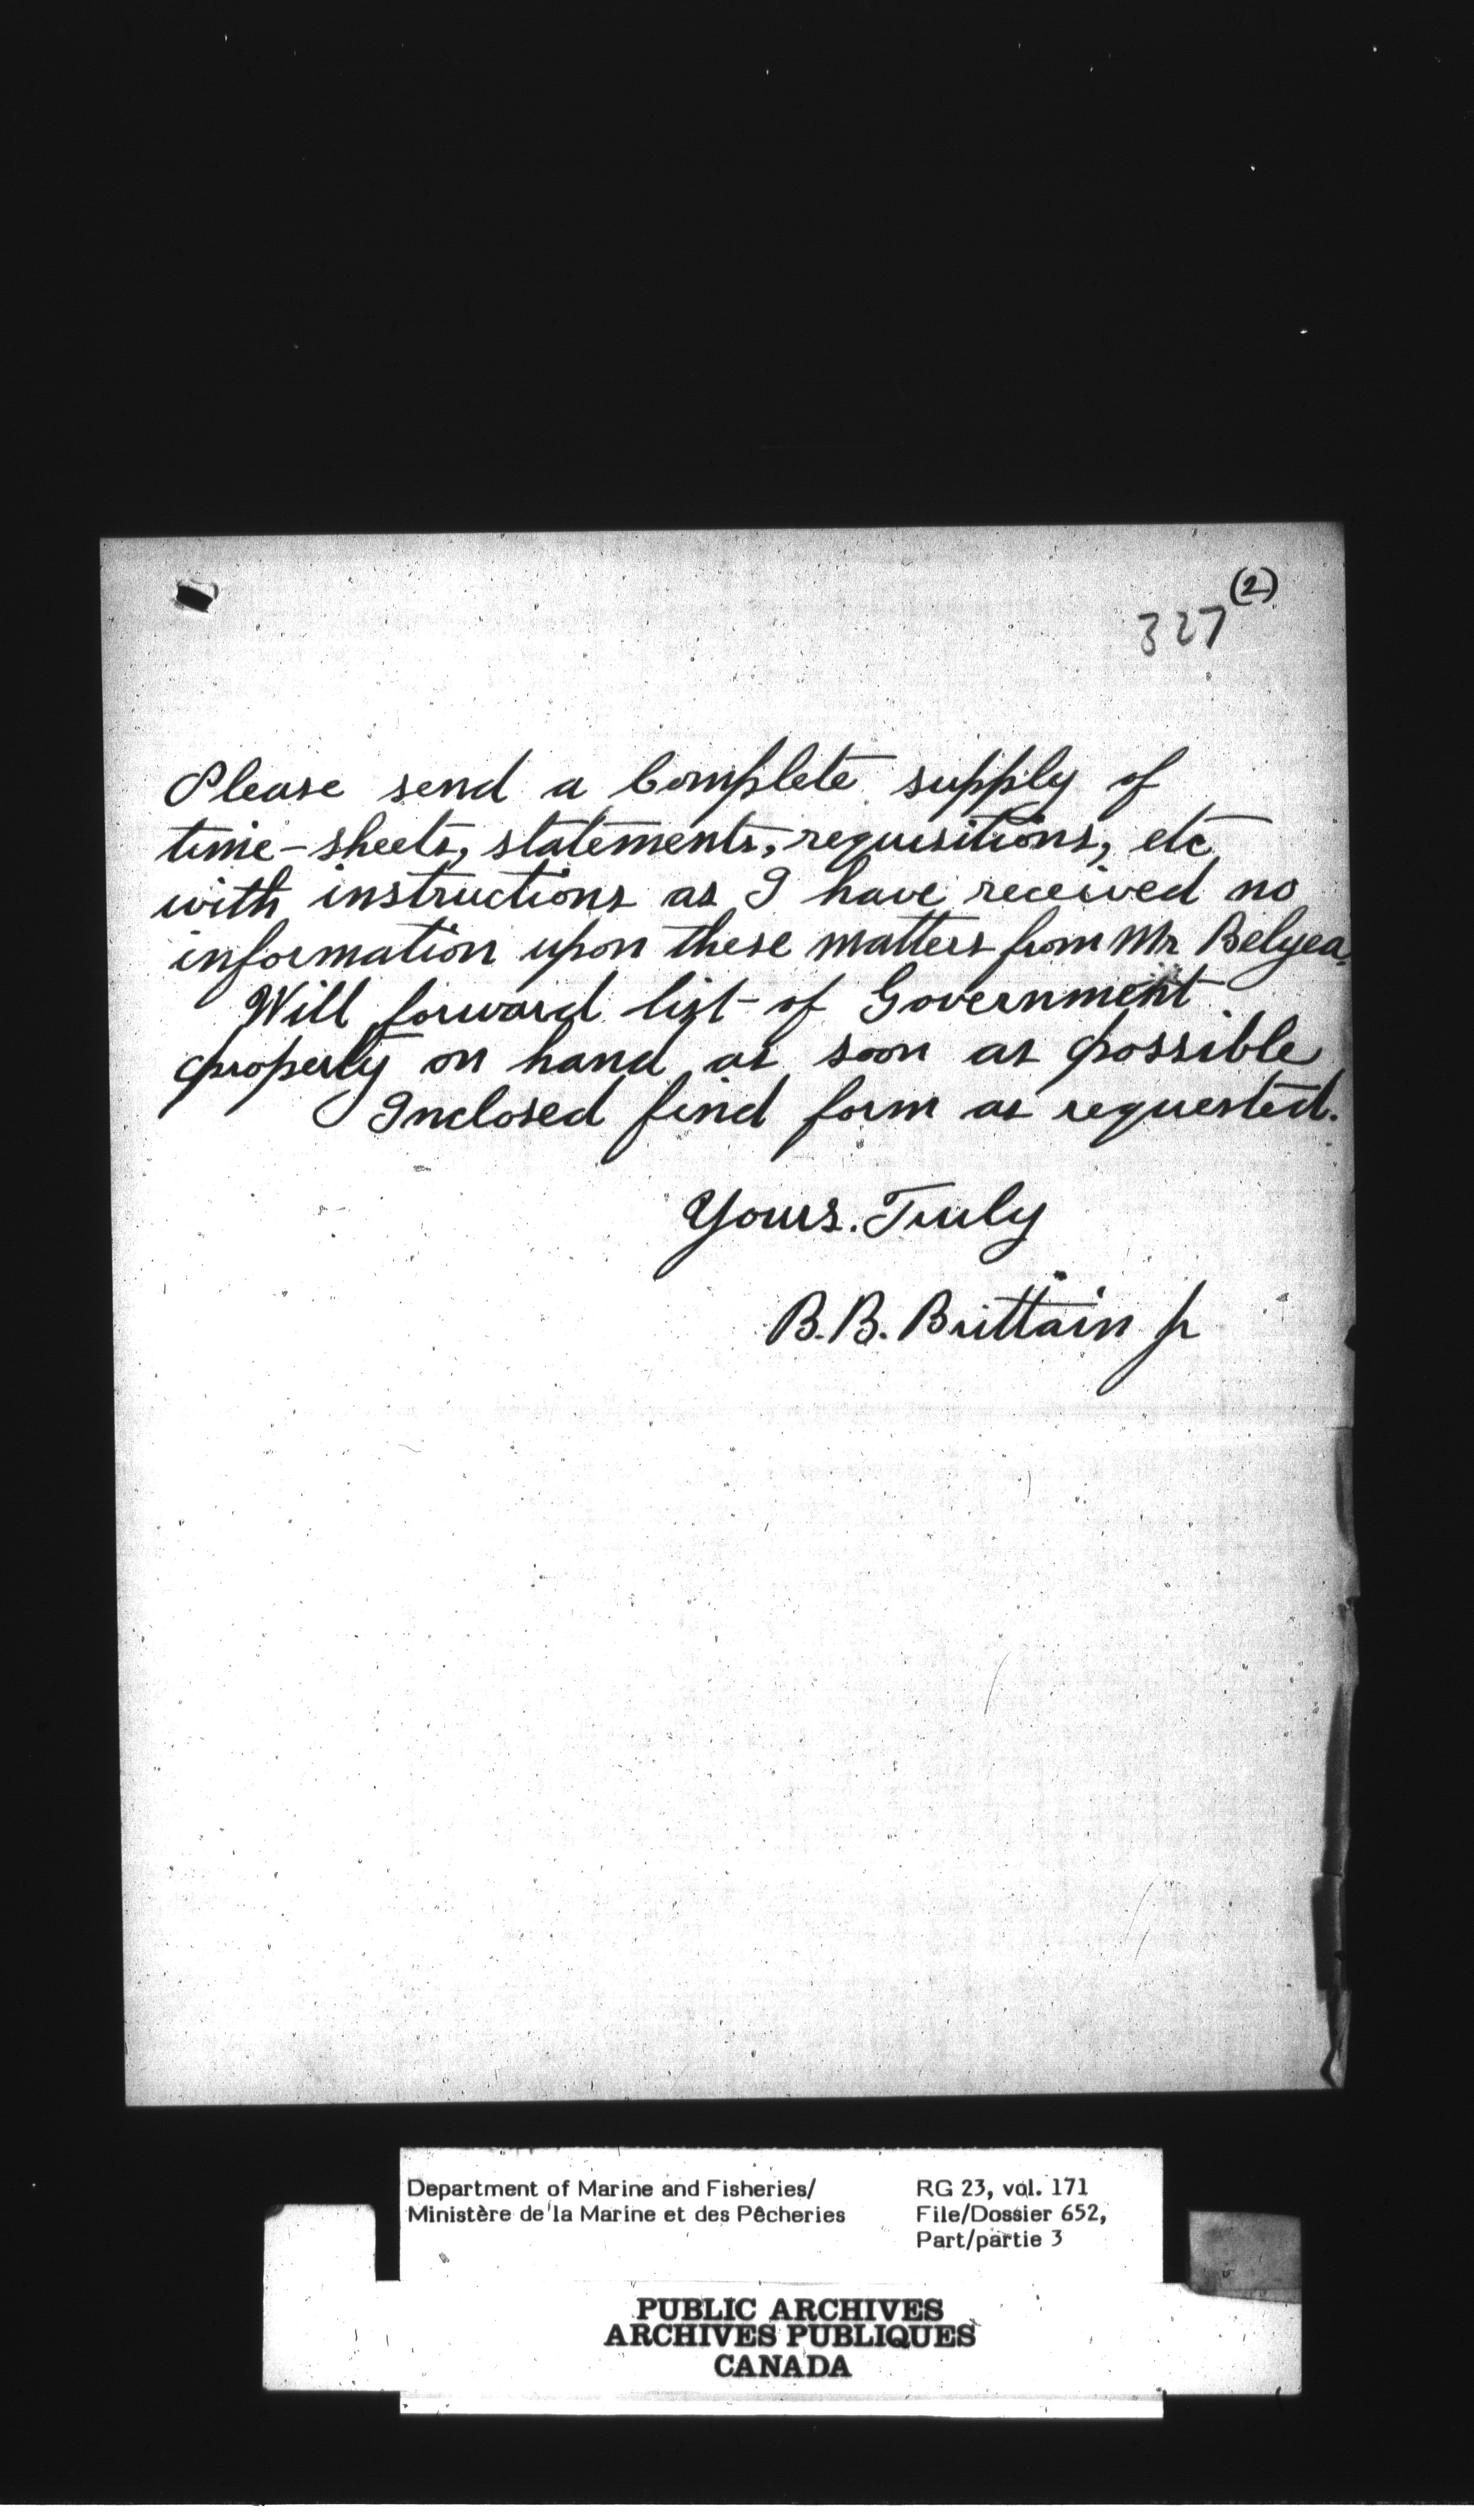 (2)
327
Please send a Complete supply of
time-sheets, statements, requisitions, etc
with instructions as I have received no
information upon these matters from Mr Belyea.
Will forward list of Government
property on hand as soon as possible
Inclosed find form as requested.
Yours. Truly
B.B. Brittain Jr
Department of Marine and Fisheries/
Ministère de la Marine et des Pêcheries
RG 23, vol. 171
File/Dossier 652,
Part/partie 3
PUBLIC ARCHIVES
ARCHIVES PUBLIQUES
CANADA